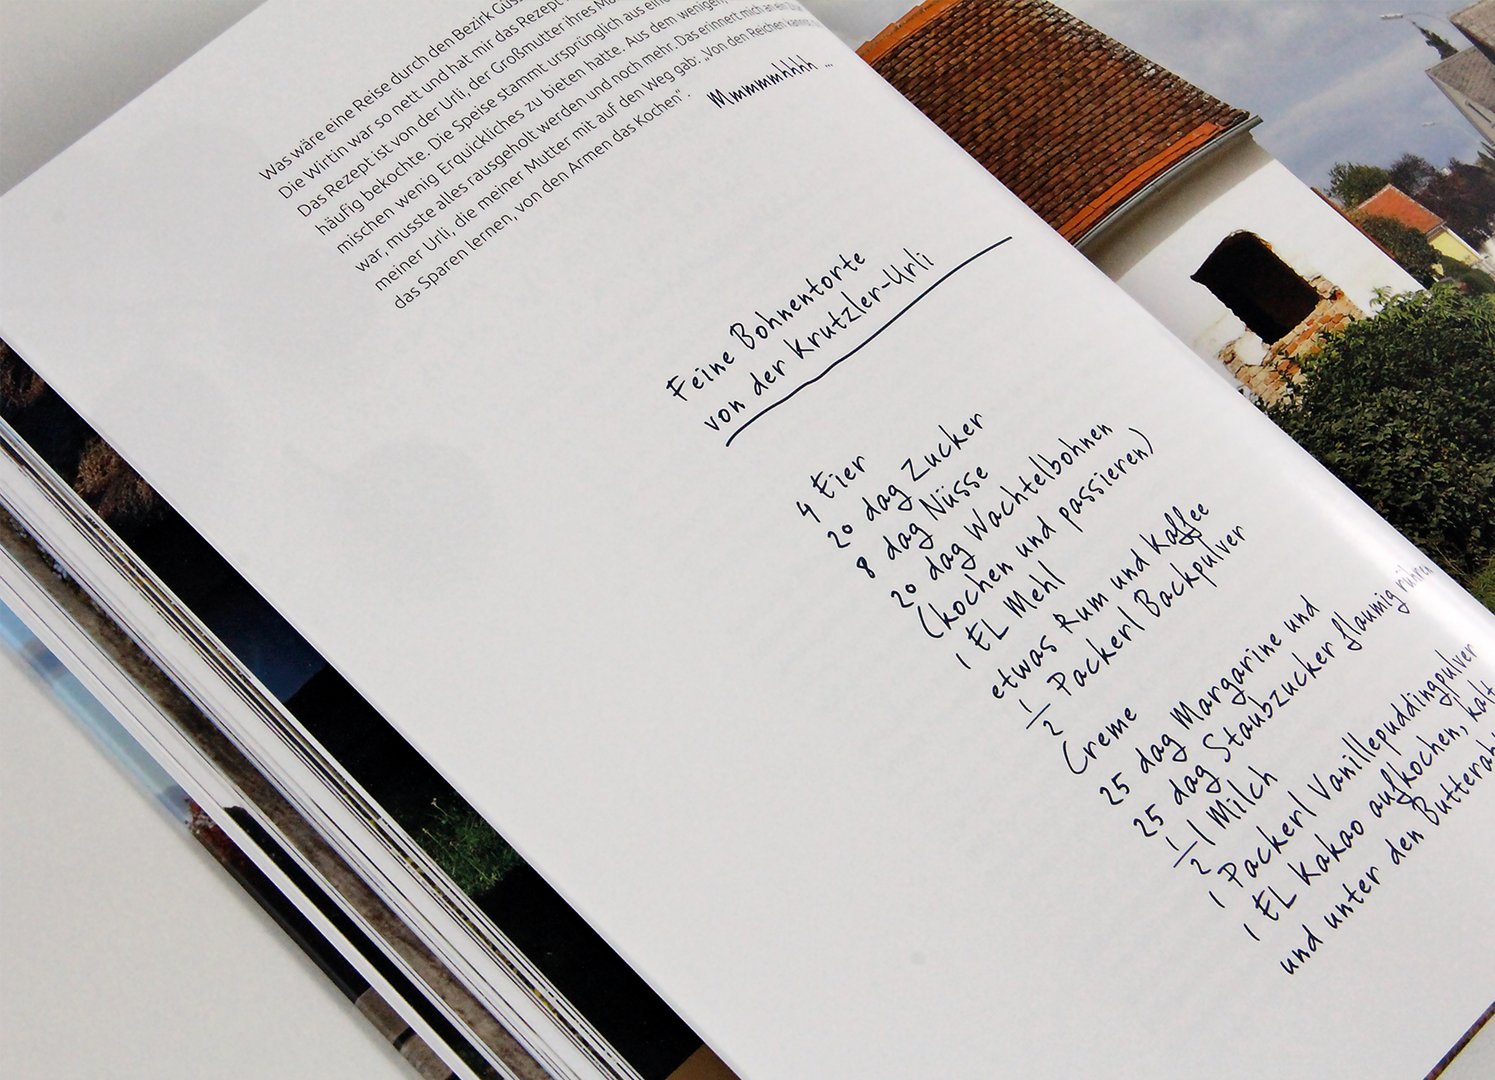 Was wäre eine Reise durch den Bezirk
Die Wirtin war so nett und hat mir das Rezept
Das Rezept ist von der Urli, der Großmutter ihres
häufig bekochte. Die Speise stammt ursprünglich aus
mischen wenig Erquickliches zu bieten hatte. Aus dem wenigen,
war, musste alles rausgeholt werden und noch mehr. Das erinnert mich an
meiner Urli, die meiner Mutter mit auf den Weg gab: „Von den Reichen
das Sparen lernen, von den Armen das Kochen“.
Mmmmmhhhh ...
Feine Bohnentorte
von der Krutzler-Urli
4 Eier
20 dag Zucker
8 dag Nüsse
20 dag Wachtelbohnen
(kochen und passieren)
1 EL Mehl
etwas Rum und Kaffee
1/2 Packerl Backpulver
Creme
25 dag Margarine und
25 dag Staubzucker flaumig rühren
1/2 l Milch
1 Packerl Vanillepuddingpulver
1 EL Kakao aufkochen, kalt
und unter den